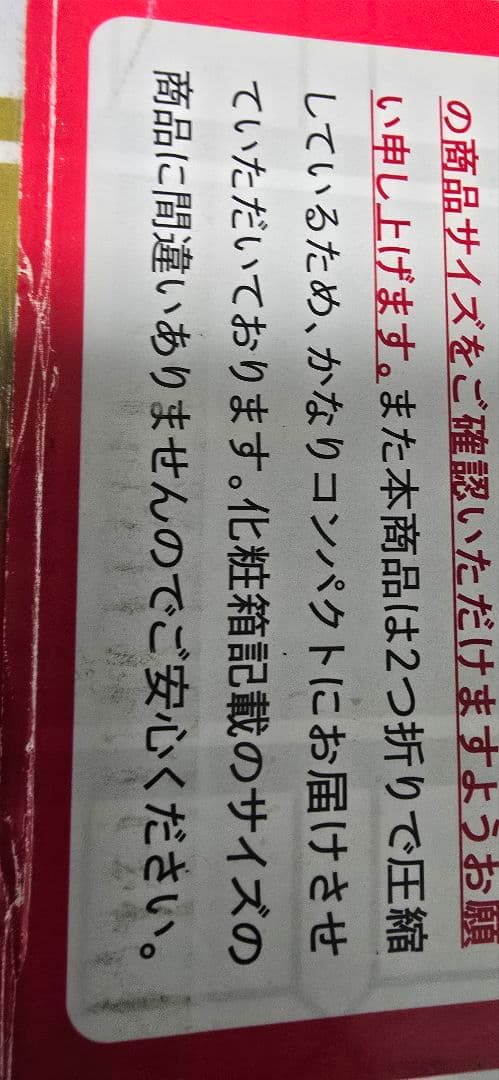 の商品サイズをご確認いただけますようお願
い申し上げます。また本商品は2つ折りで圧縮
しているため、かなりコンパクトにお届けさせ
ていただいております。化粧箱記載のサイズの
商品に間違いありませんのでご安心ください。